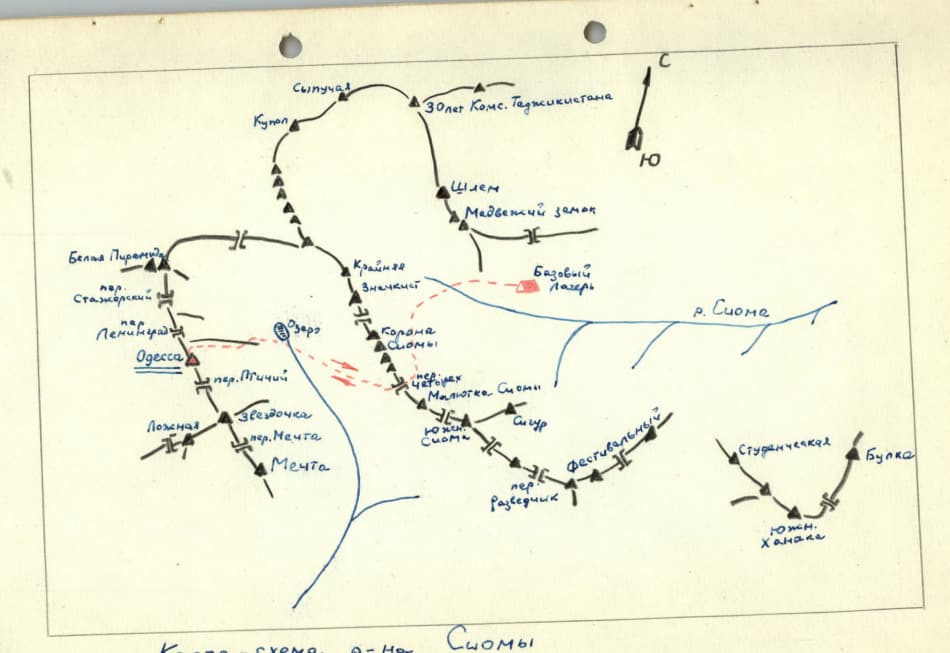 С
Ю
Сыпучая
30 лет Комс. Таджикистана
Купол
Шлем
Медвежий замок
Белая Пирамида
Крайняя
Значкист
Базовый
Лагерь
пер.
Стажёрский
р. Сиома
пер.
Ленинград
Озеро
Корона
Сиомы
Одесса
пер. Птичий
пер.
четырех
Малютка Сиомы
Ложная
Звездочка
Южн.
Сиома
Сигур
Фестивальный
пер. Мечта
Мечта
пер.
Разведчик
Студенческая
Булка
Южн.
Ханака
Карта-схема р-на Сиомы